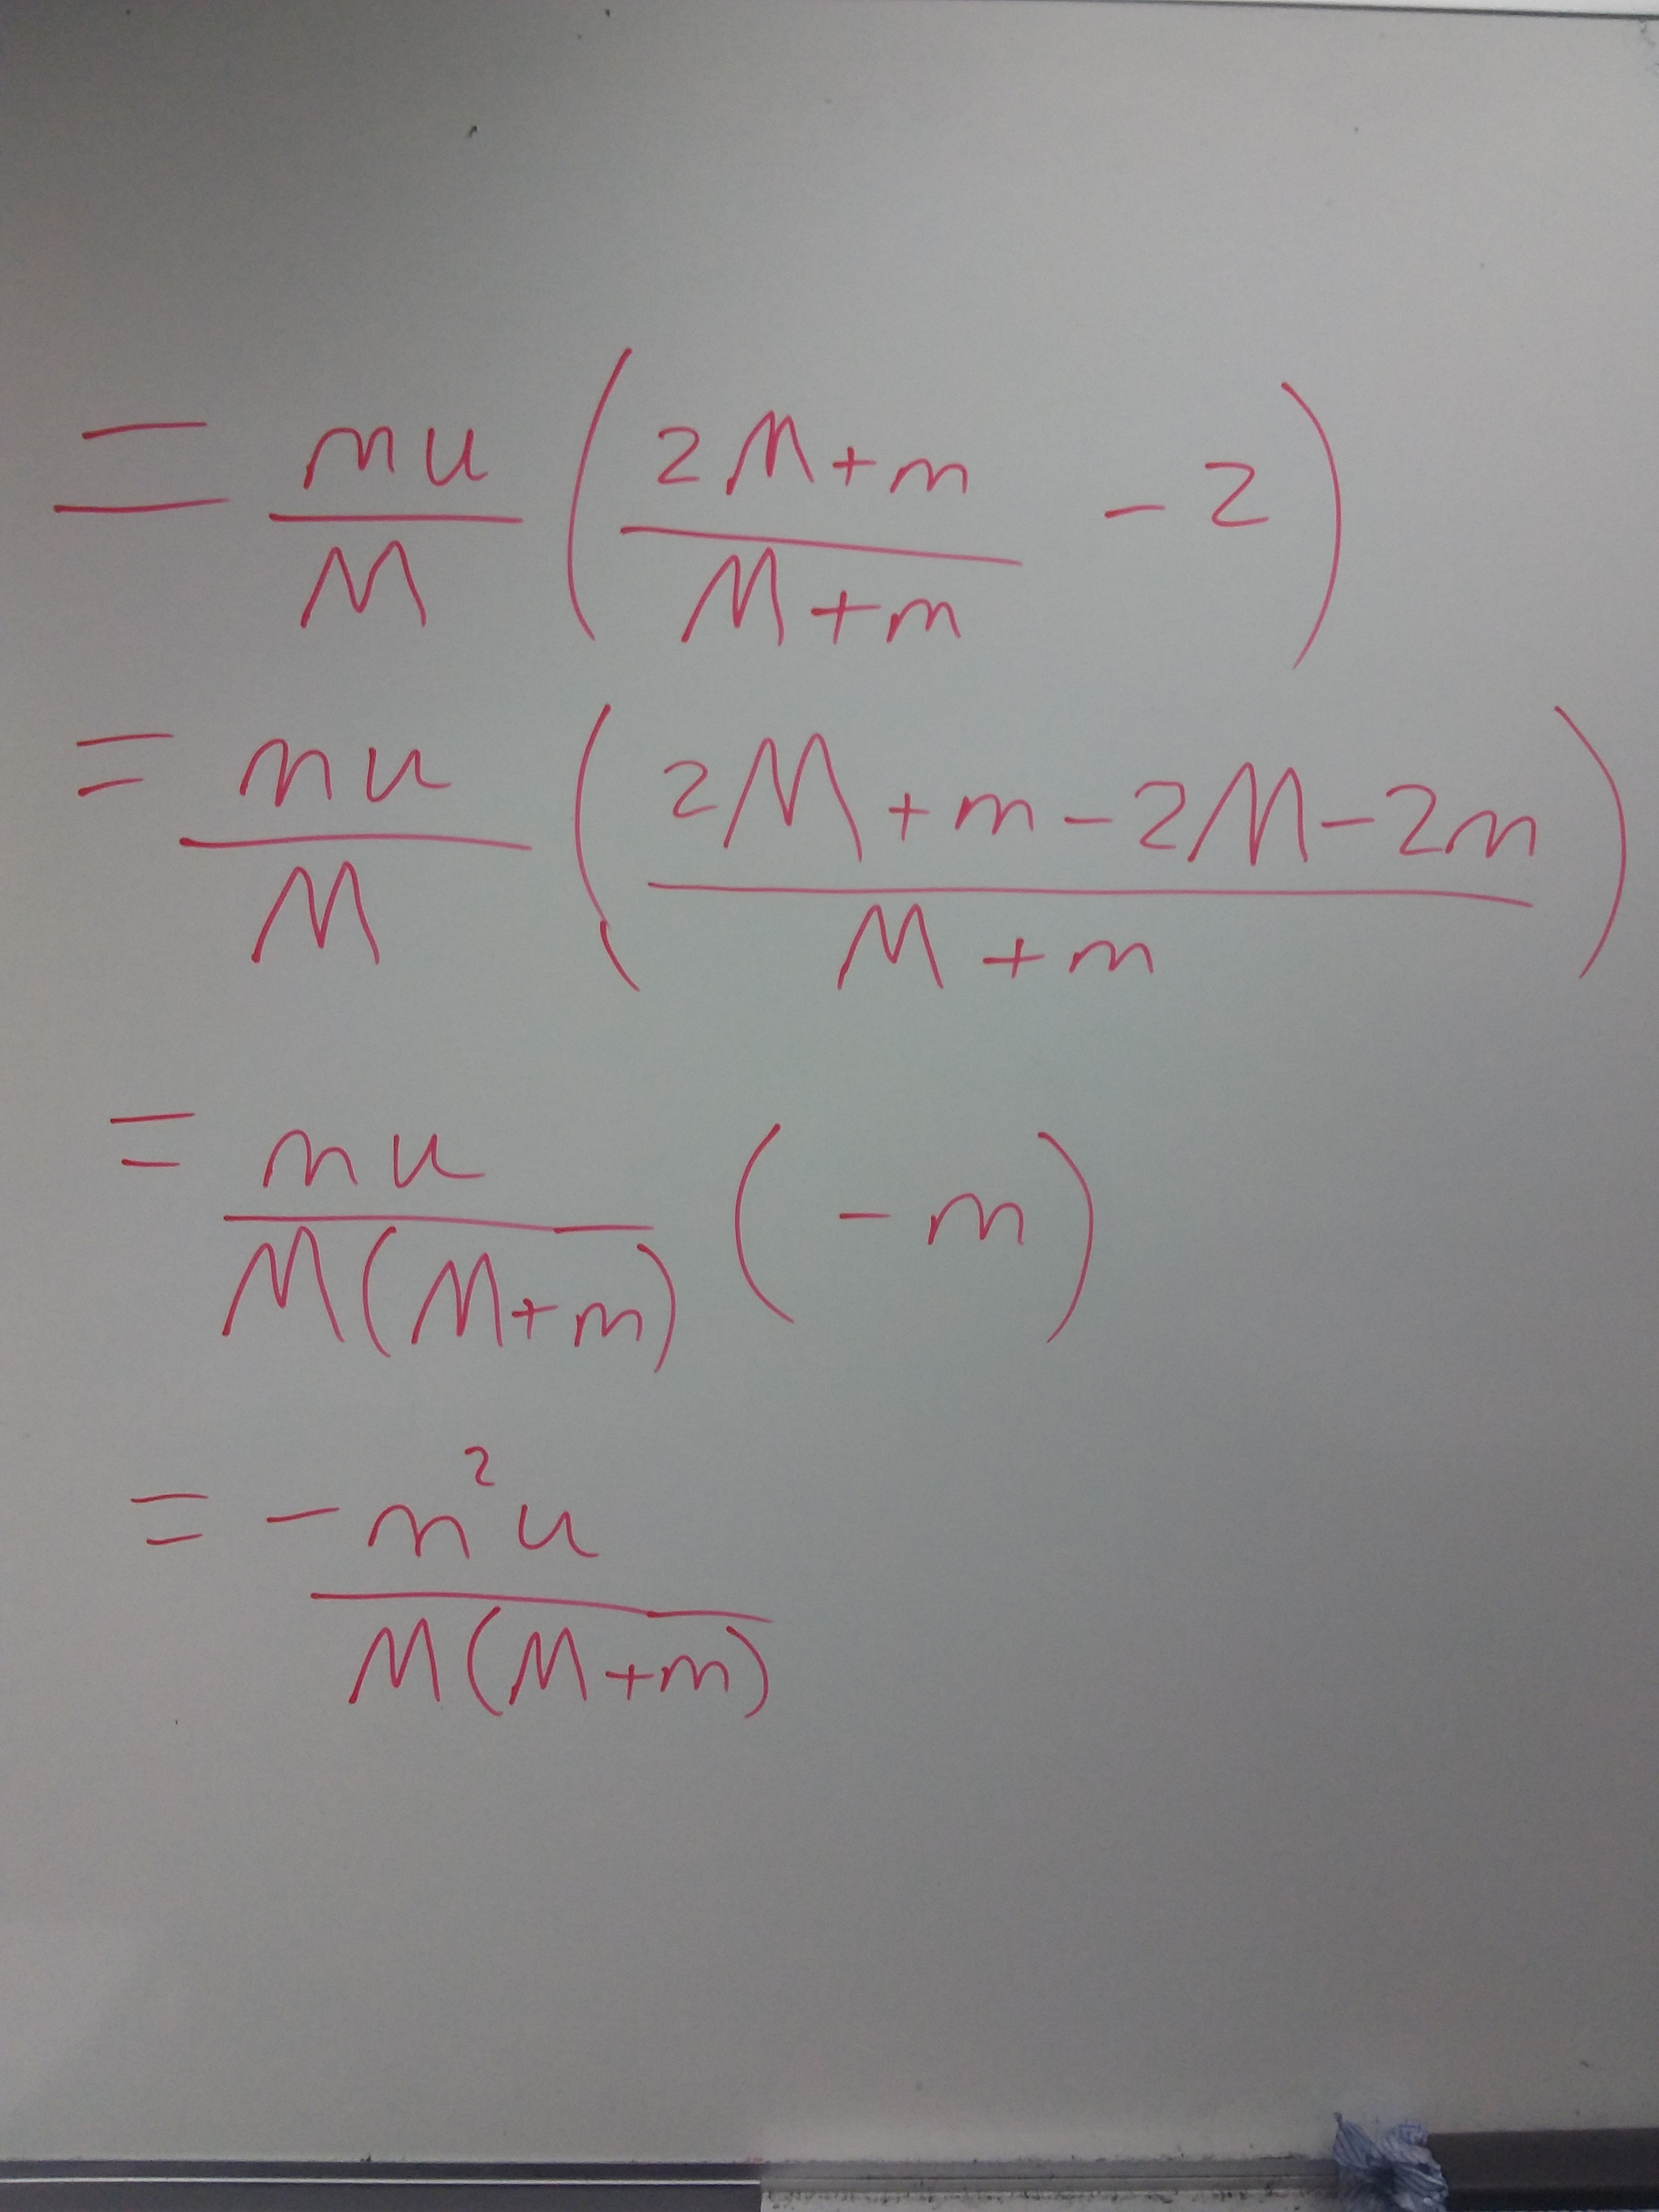 = mu/M ( (2M+m)/(M+m) - 2 )
= mu/M ( (2M+m-2M-2m)/(M+m) )
= mu/(M(M+m)) (-m)
= -m²u/(M(M+m))